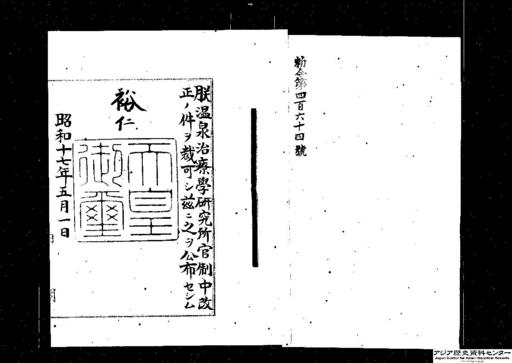 勅令第四百六十四號
朕温泉治療學研究所官制中改
正ノ件ヲ裁可シ茲ニ之ヲ公布セシム
裕仁
天皇
御璽
昭和十七年五月一日
アジア歴史資料センター
Japan Center for Asian Historical Records